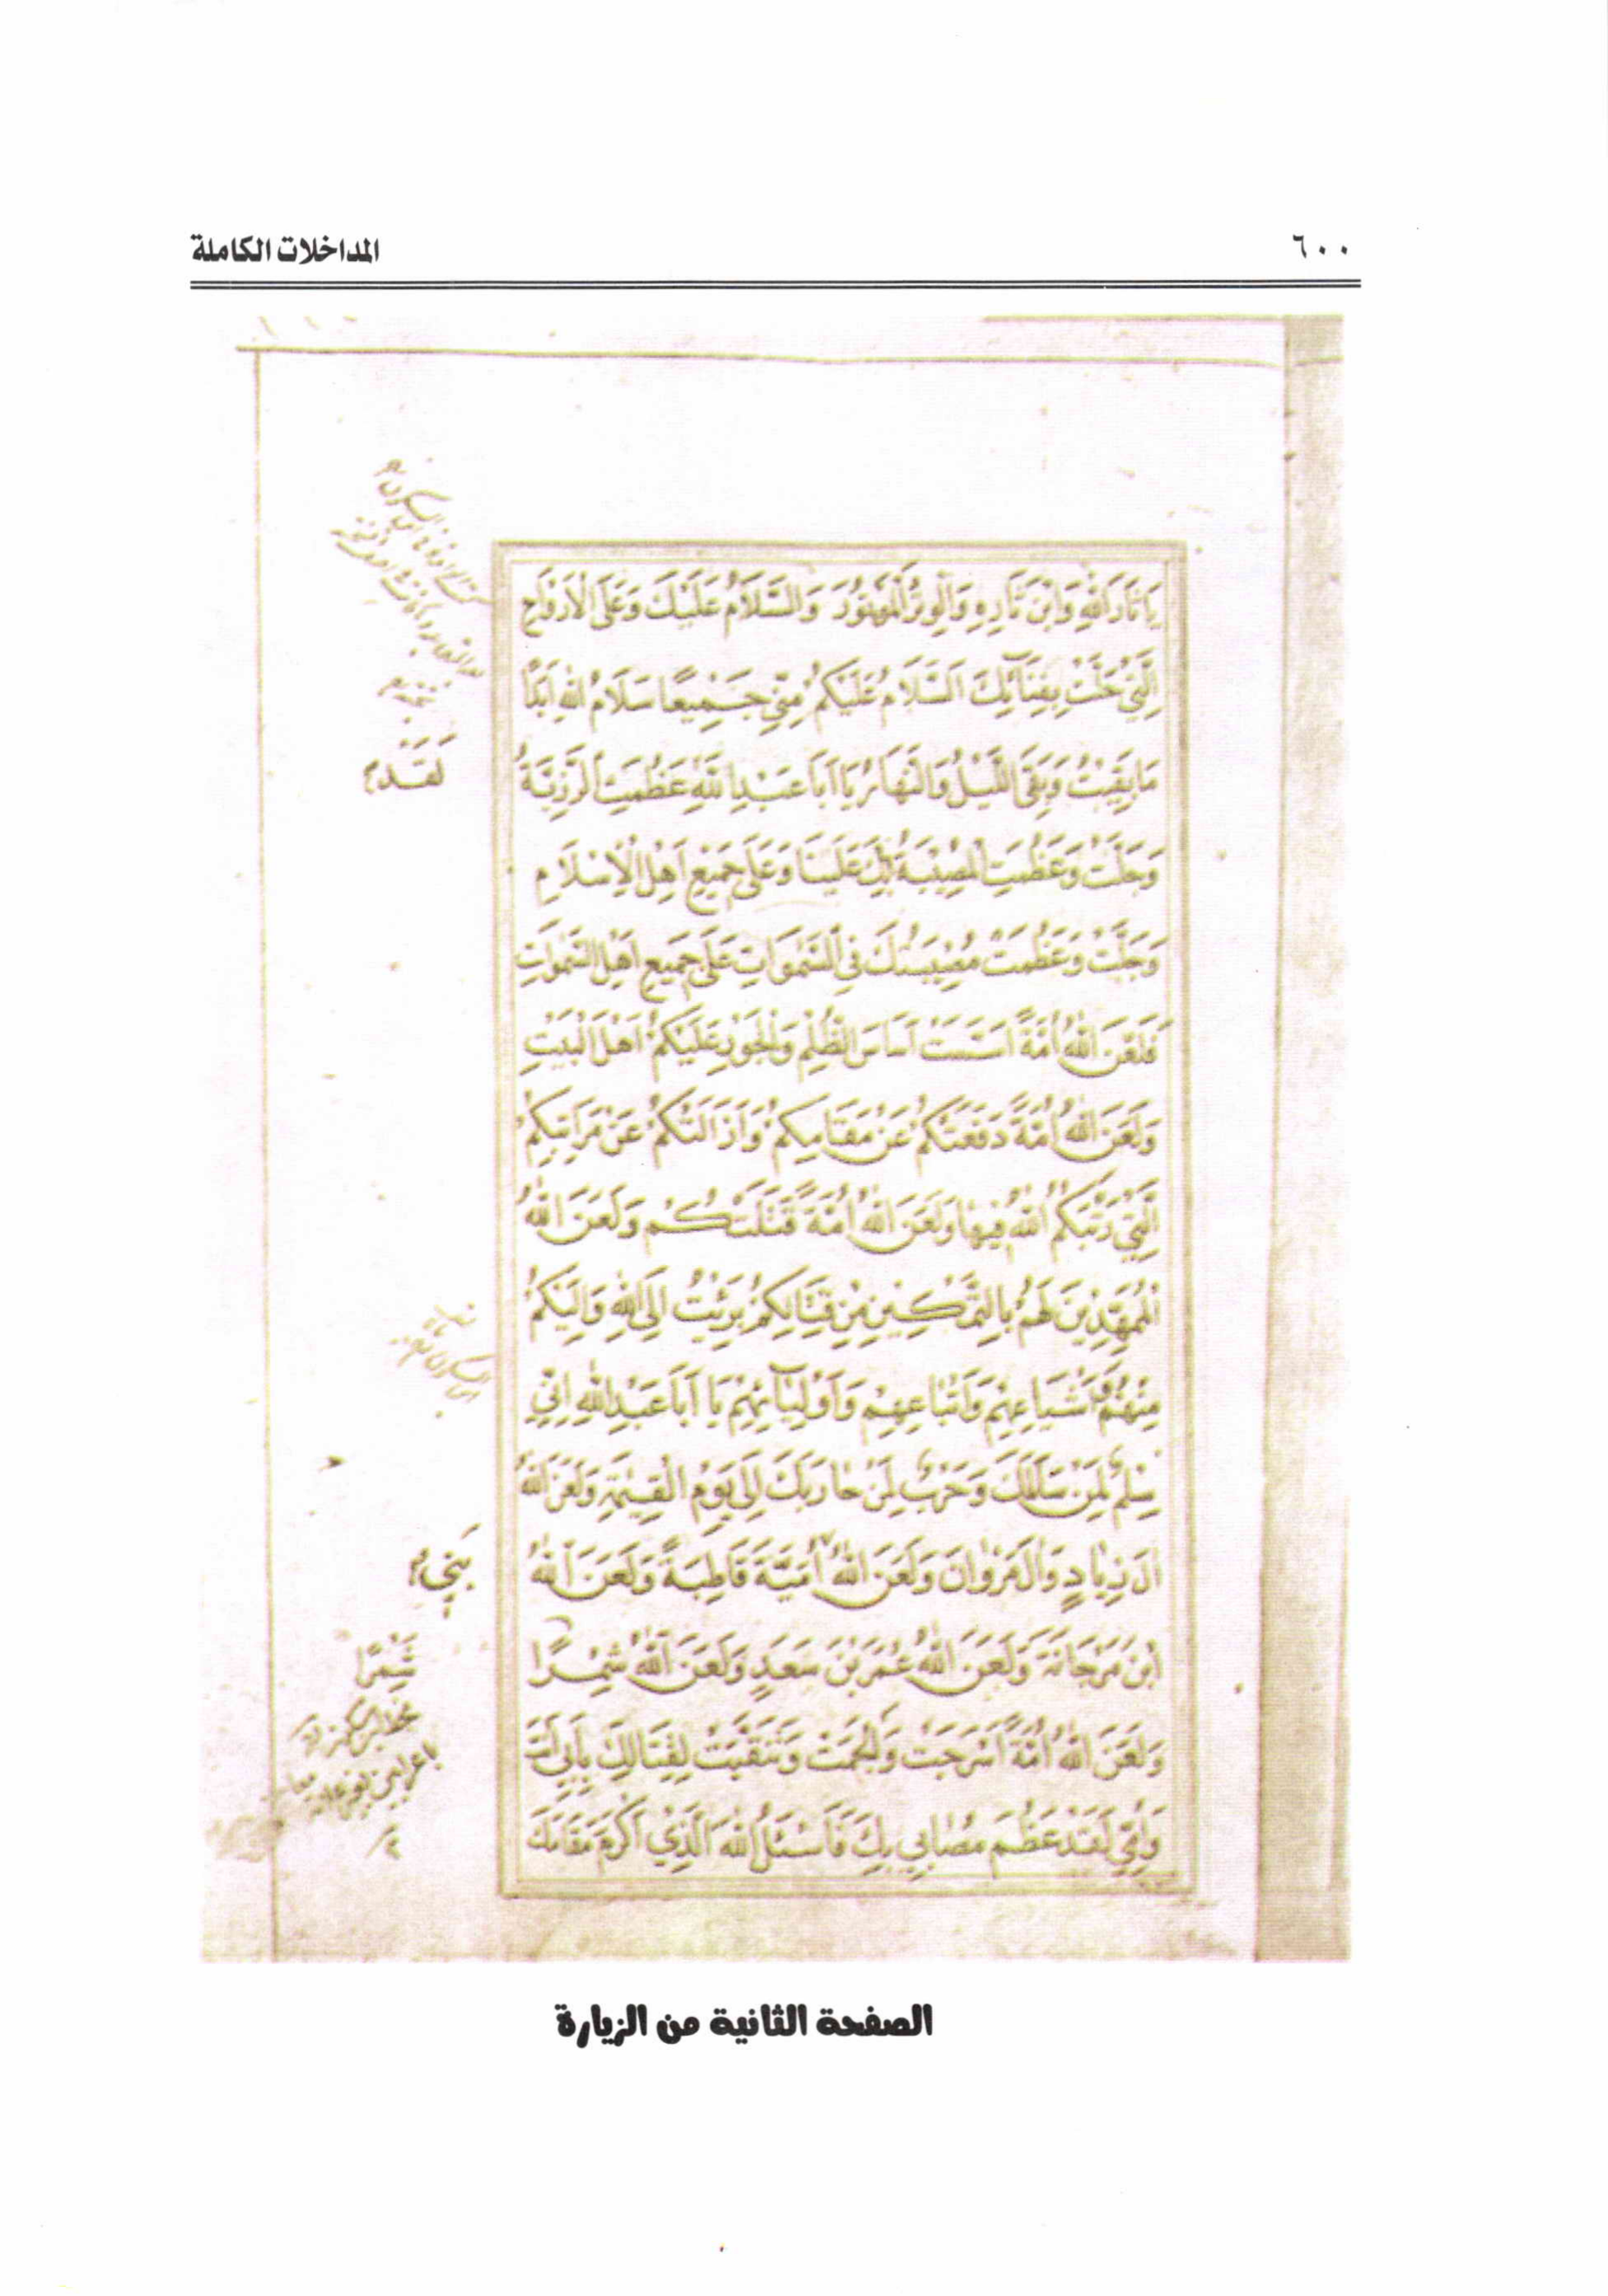 ٦٠٠
المداخلات الكاملة
يَا ثَارَ اللهِ وَابْنَ ثَارِهِ وَالْوِتْرَ الْمَوْتُورَ وَالسَّلَامُ عَلَيْكَ وَعَلَى الْأَرْوَاحِ
الَّتِي حَلَّتْ بِفِنَآئِكَ اَلسَّلَامُ عَلَيْكُمْ مِنِّي جَمِيعًا سَلَامُ اللهِ اَبَدًا
مَا بَقِيْتُ وَبَقِيَ اللَّيْلُ وَالنَّهَارُ يَا اَبَا عَبْدِ اللهِ عَظُمَتِ الرَّزِيَّةُ
لَقَد
وَجَلَّتْ وَعَظُمَتِ الْمُصِيْبَةُ بِكَ عَلَيْنَا وَعَلَى جَمِيْعِ اَهْلِ الْاِسْلَامِ
وَجَلَّتْ وَعَظُمَتْ مُصِيْبَتُكَ فِي السَّمٰوَاتِ عَلَى جَمِيعِ اَهْلِ السَّمٰوَاتِ
فَلَعَنَ اللهُ اُمَّةً اَسَّسَتْ اَسَاسَ الظُّلْمِ وَالْجَوْرِ عَلَيْكُمْ اَهْلَ الْبَيْتِ
وَلَعَنَ اللهُ اُمَّةً دَفَعَتْكُمْ عَنْ مَقَامِكُمْ وَاَزَالَتْكُمْ عَنْ مَرَاتِبِكُمُ
الَّتِي رَتَّبَكُمُ اللهُ فِيهَا وَلَعَنَ اللهُ اُمَّةً قَتَلَتْكُمْ وَلَعَنَ اللهُ
الْمُمَهِّدِيْنَ لَهُمْ بِالتَّمْكِيْنِ مِنْ قِتَالِكُمْ بَرِئْتُ اِلَى اللهِ وَاِلَيْكُمْ
مِنْهُمْ وَاَشْيَاعِهِمْ وَاَتْبَاعِهِمْ وَاَوْلِيَآئِهِمْ يَا اَبَا عَبْدِ اللهِ اِنِّي
سِلْمٌ لِمَنْ سَالَمَكَ وَحَرْبٌ لِمَنْ حَارَبَكَ اِلَى يَوْمِ الْقِيٰمَةِ وَلَعَنَ اللهُ
اٰلَ زِيَادٍ وَاٰلَ مَرْوَانَ وَلَعَنَ اللهُ اُمَيَّةَ قَاطِبَةً وَلَعَنَ اللهُ
بَنِي
ابْنَ مَرْجَانَةَ وَلَعَنَ اللهُ عُمَرَ بْنَ سَعَدٍ وَلَعَنَ اللهُ شِمْرًا
شَمِرًا
وَلَعَنَ اللهُ اُمَّةً اَسْرَجَتْ وَاَلْجَمَتْ وَتَنَقَّبَتْ لِقِتَالِكَ بِاَبِي اَنْتَ
وَاُمِّي لَقَدْ عَظُمَ مُصَابِي بِكَ فَاَسْئَلُ اللهَ الَّذِي اَكْرَمَ مَقَامَكَ
الصفحة الثانية من الزيارة